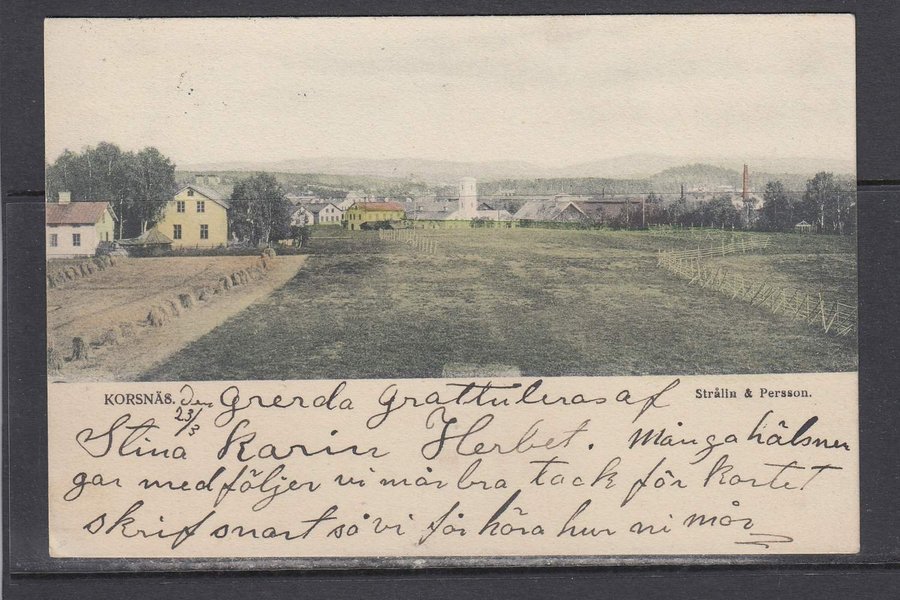 KORSNÄS. den Grerda Grattuleras af Strålin & Persson.
23/3
Stina Karin Herbet. Många hälsner
gar medföljer vi mår bra tack för kortet
skrif snart så vi får höra hur ni mår